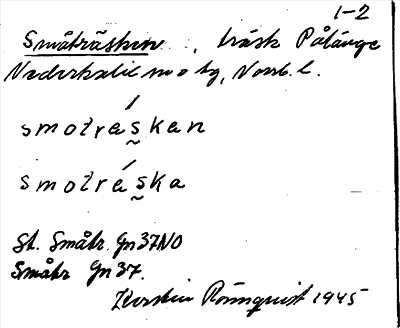 1-2
Småträsken, träsk Pålänge
Nederkalix m o tg, Norrb. l.
smotrḙ́s̰kan
smotrḙ́s̰ka
St. Småtr. Gn37NO
Småtr Gn37.
Kerstin Rönnquist 1945